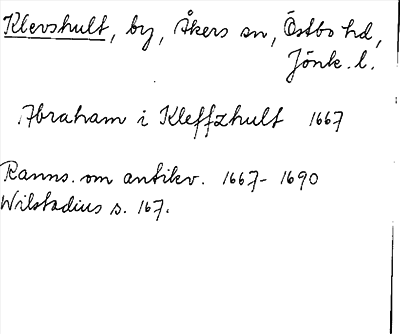 Klevshult, by, Åkers sn, Östbo hd,
Jönk. l.
Abraham i Kleffzhult 1667
Ranns. om antikv. 1667-1690
Wilstadius s. 167.